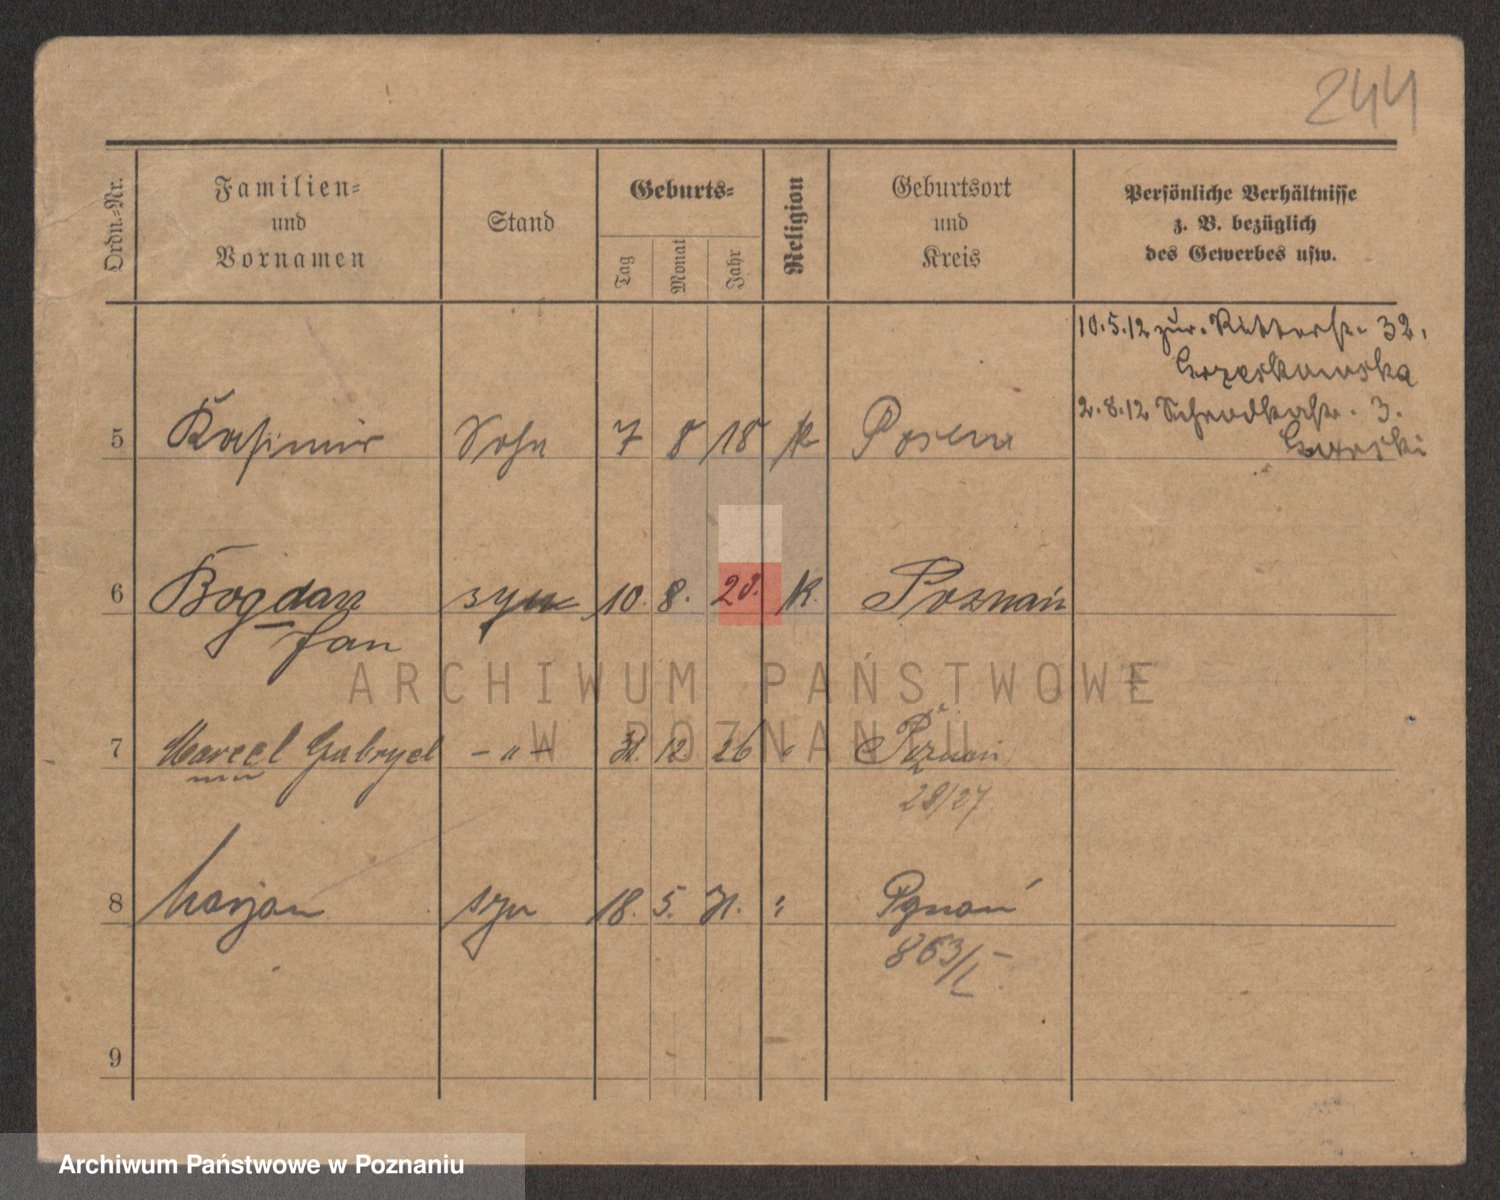 244
Ordn.=Nr.
Familien=
und
Vornamen
Stand
Geburts=
Tag
Monat
Jahr
Religion
Geburtsort
und
Kreis
Persönliche Verhältnisse
z. B. bezüglich
des Gewerbes usw.
10.5.12 zur. Ritterstr. 32.
2.8.12 Schrodkastr. 3.
5 Kasimir Sohn 7 8 18 k Posen
6 Bogdan syn 10. 8. 23. k. Poznań
Jan
7 Marcel Gabryel – " – 31. 12 26 " Poznań
28/27
8 Marjan syn 18. 5. 31. " Poznań
863/
9
ARCHIWUM PAŃSTWOWE
W POZNANIU
Archiwum Państwowe w Poznaniu